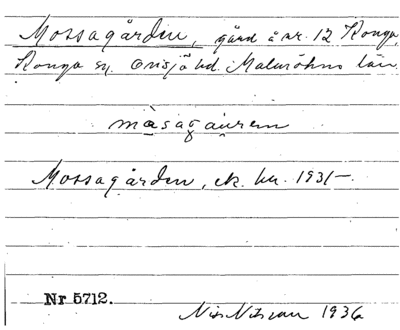 Mossagården, gård å nr. 12 Konga,
Konga sn. Onsjö hd. Malmöhus län.
måsagauren
Mossagården, ek. ku. 1931-
Nr 5712.
Nils Nilsson 1936